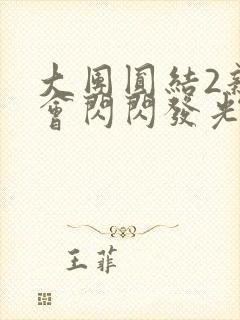 大團圓結2
會閃閃發光
王菲